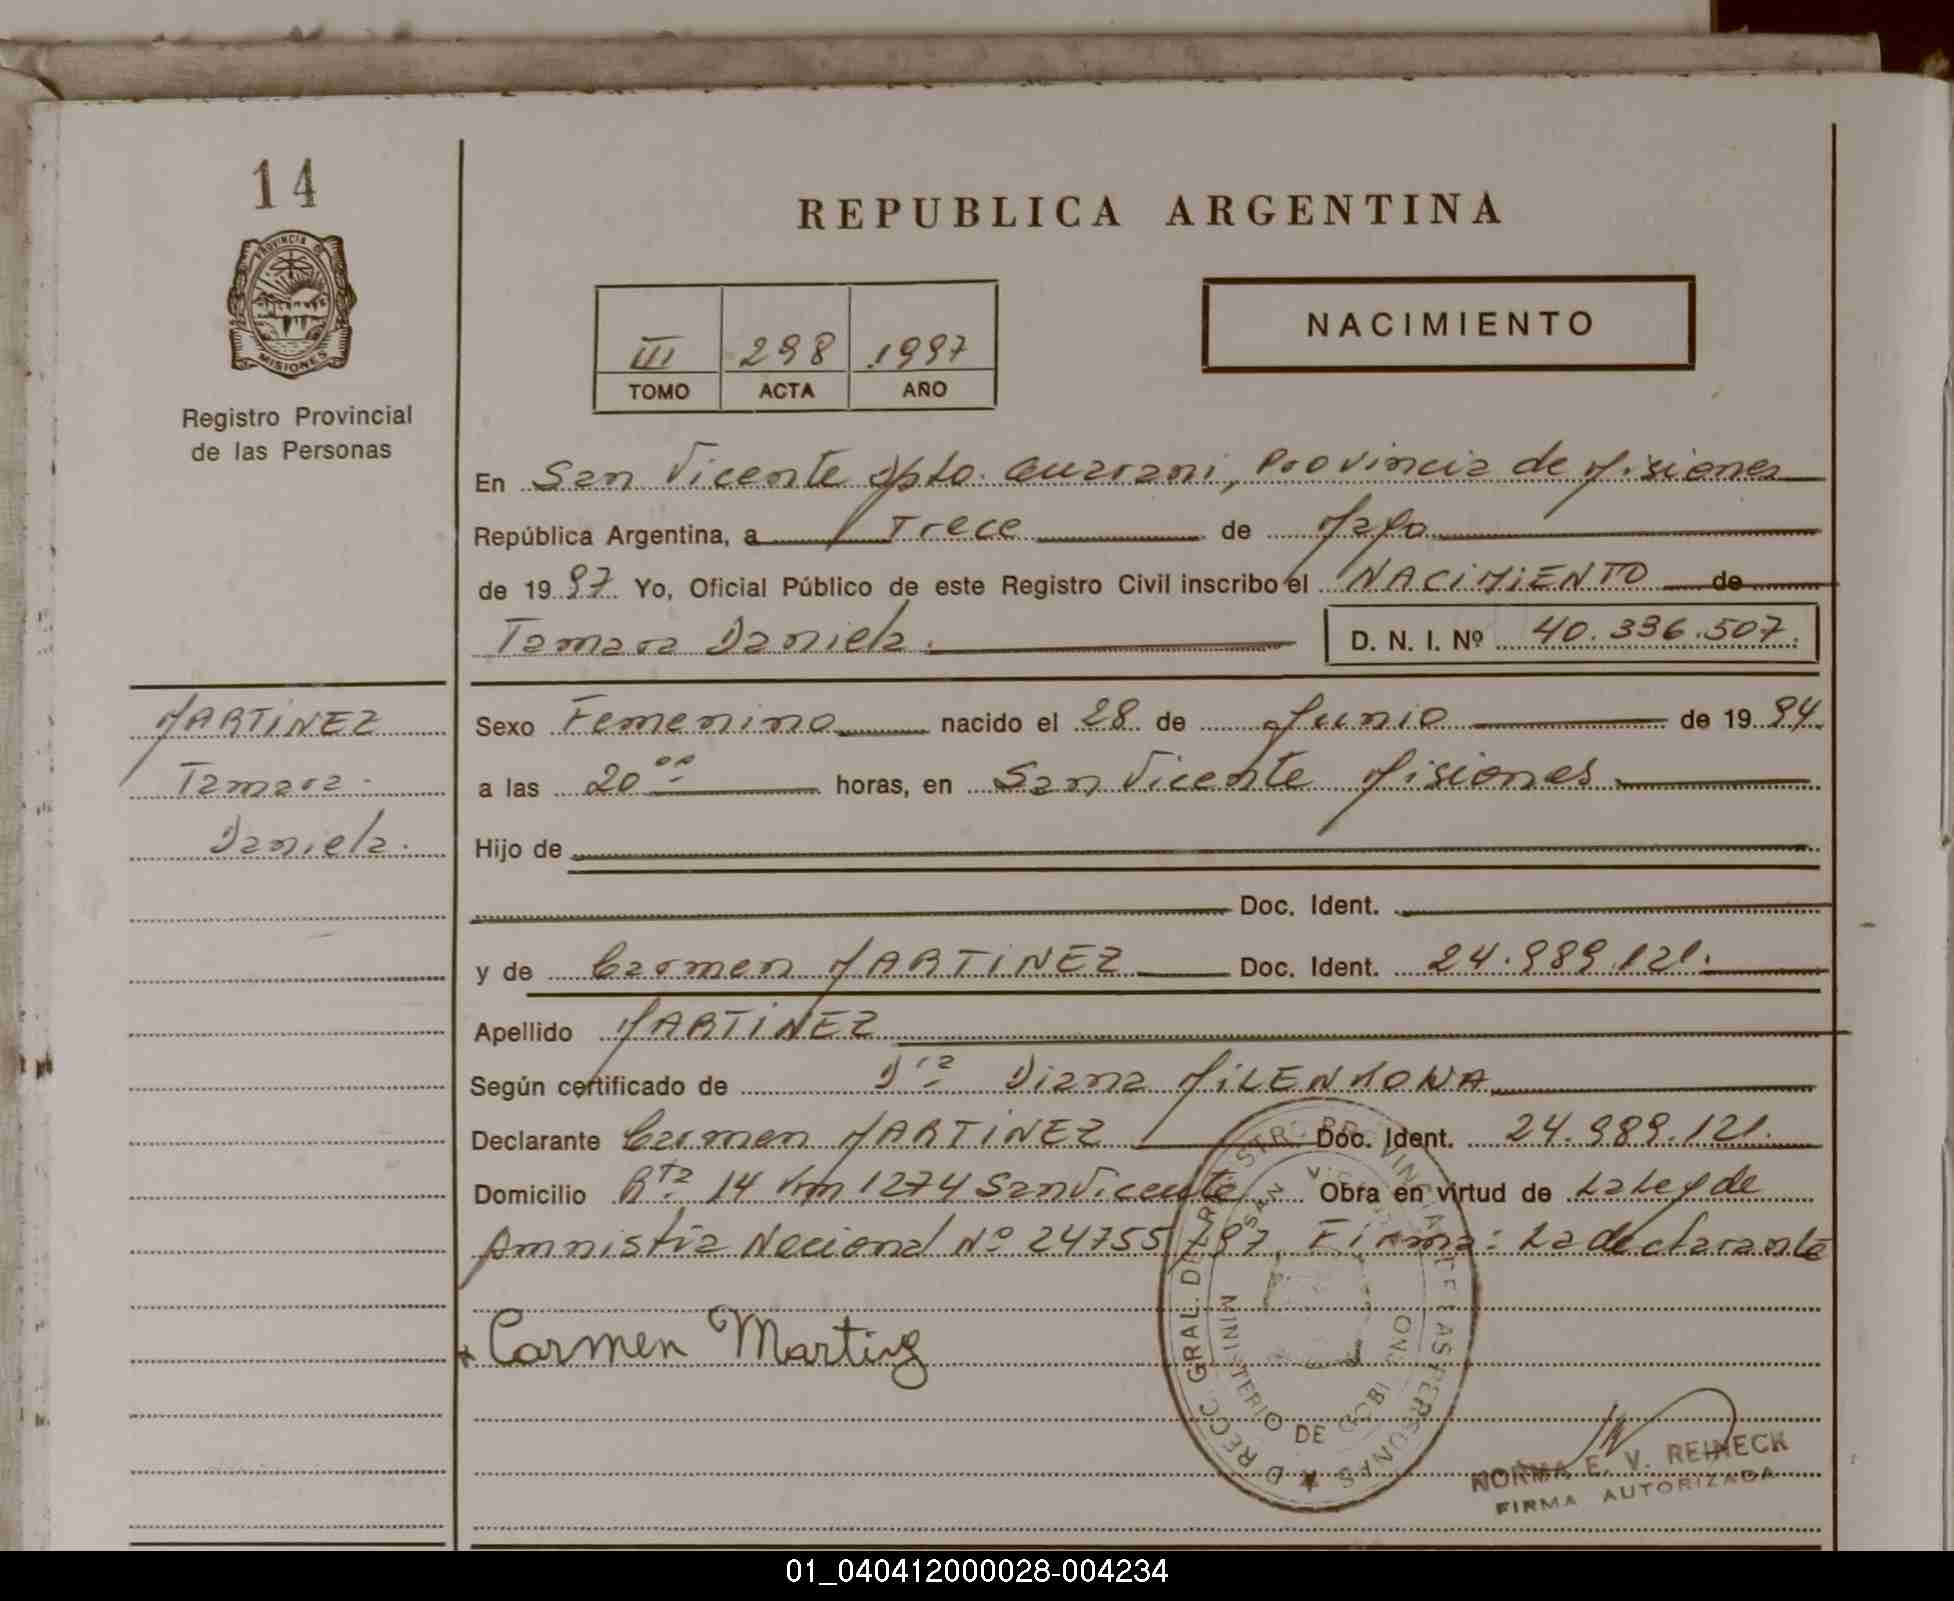 14
REPUBLICA ARGENTINA
PROVINCIA DE
MISIONES
Registro Provincial
de las Personas
III 298 1997
TOMO ACTA AÑO
NACIMIENTO
En San Vicente Dpto. Guarani, Provincia de Misiones
República Argentina, a Trece de Mayo
de 1997 Yo, Oficial Público de este Registro Civil inscribo el NACIMIENTO de
Tamara Daniela. D. N. I. Nº 40.336.507.
MARTINEZ
Tamara
Daniela.
Sexo Femenino nacido el 28 de Junio de 1994
a las 20 00 horas, en San Vicente Misiones
Hijo de
Doc. Ident.
y de Carmen MARTINEZ Doc. Ident. 24.989.121.
Apellido MARTINEZ
Según certificado de Dra Diana
Declarante Carmen MARTINEZ Doc. Ident. 24.989.121.
Domicilio Rta 14 Km 1274 San Vicente Obra en virtud de La Ley de
Amnistia Nacional Nº 24755/97. Firma: La declarante
Carmen Martinz
DIRECC. GRAL. DE REGISTRO PROVINCIAL DE LAS PERSONAS
SAN VICENTE
MINISTERIO DE GOBIERNO
NORMA E. V. REINECK
FIRMA AUTORIZADA
01_040412000028-004234